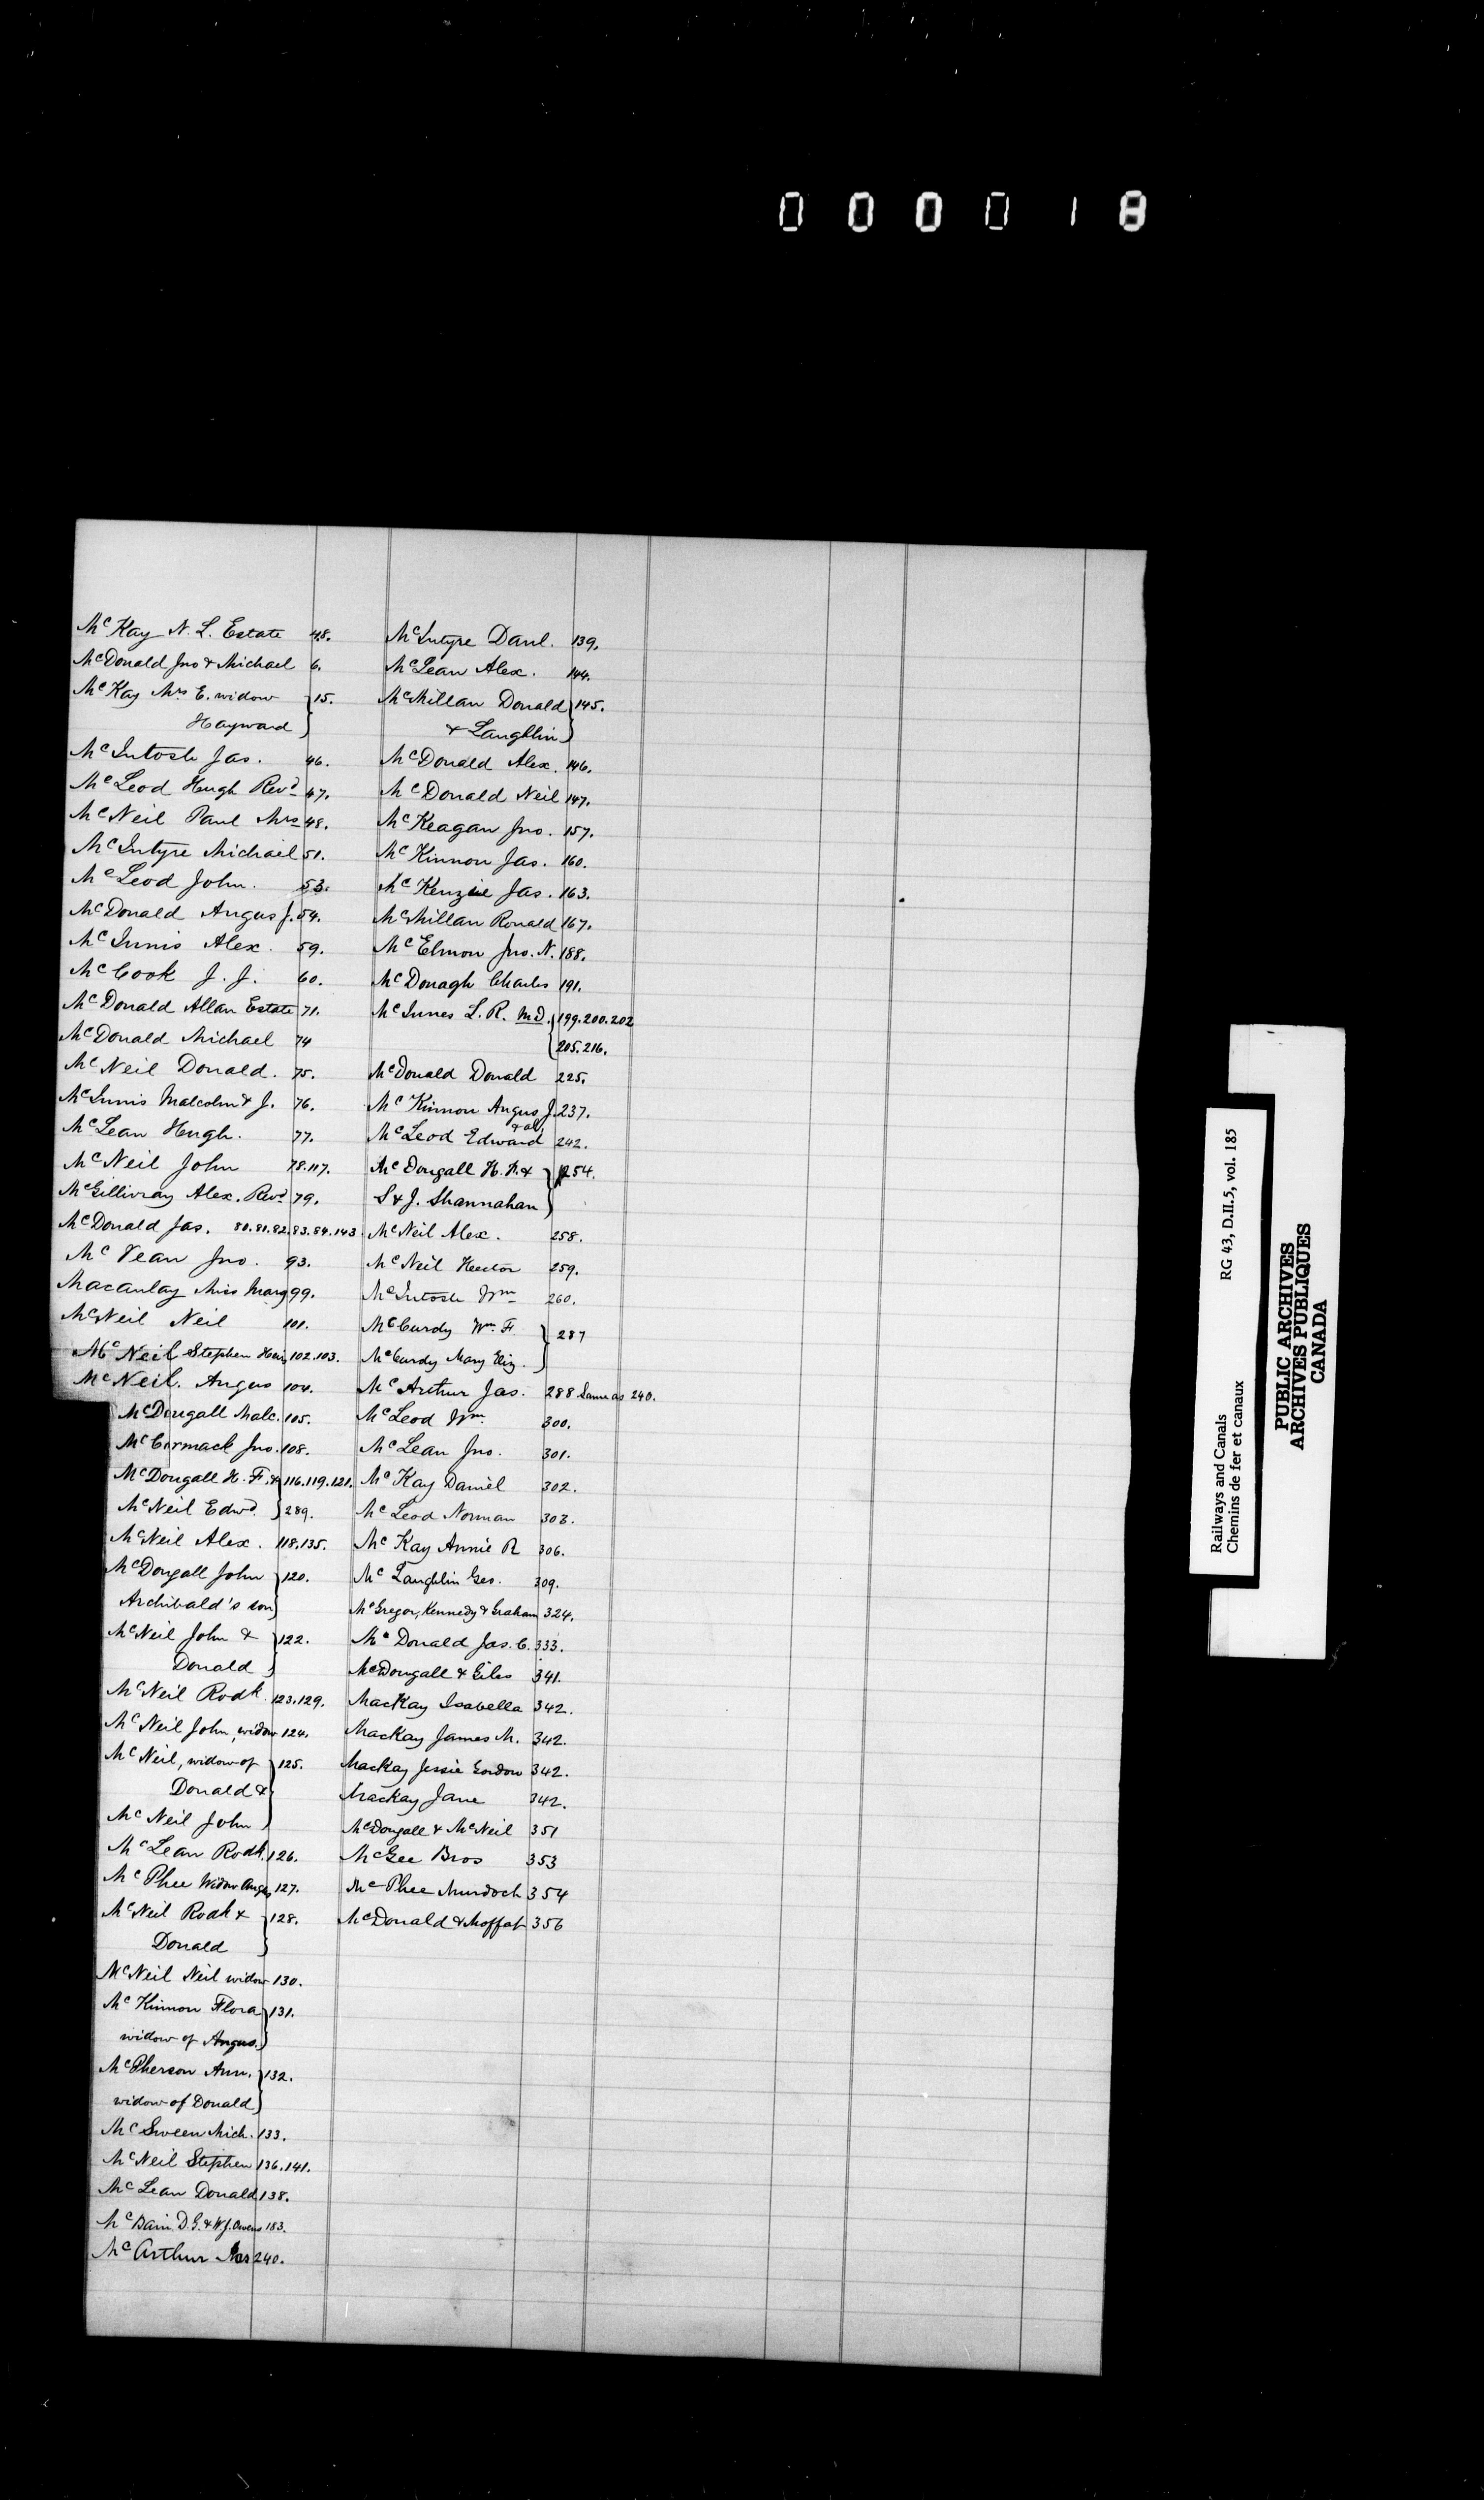 000018
McKay N. L. Estate 48.
McDonald Jno & Michael 6.
McKay Mrs E. widow } 15.
Hayward }
McIntosh Jas. 46.
McLeod Hugh Revd 47.
McNeil Paul Mrs 48.
McIntyre Michael 51.
McLeod John. 53.
McDonald Angus J. 54.
McInnis Alex. 59.
McCook J. J. 60.
McDonald Allan Estate 71.
McDonald Michael 74
McNeil Donald. 75.
McInnis Malcolm & J. 76.
McLean Hugh. 77.
McNeil John 78.117.
McGillivray Alex. Revd 79.
McDonald Jas. 80.81.82.83.84.143
McVean Jno. 93.
Macaulay Miss Marg 99.
McNeil Neil 101.
McNeil Stephen Heirs 102.103.
McNeil. Angus 104.
McDougall Malc. 105.
McCormack Jno. 108.
McDougall H. F. & } 116.119.121.
McNeil Edwd. } 289.
McNeil Alex. 118.135.
McDougall John } 120.
Archibald's son }
McNeil John & } 122.
Donald }
McNeil Rodk. 123.129.
McNeil John, widow 124.
McNeil, widow of } 125.
Donald & }
McNeil John }
McLean Rodk. 126.
McPhee Widow Angus 127.
McNeil Rodk & } 128.
Donald }
McNeil Neil widow 130.
McKinnon Flora } 131.
widow of Angus. }
McPherson Ann. } 132.
widow of Donald }
McSween Mich. 133.
McNeil Stephen 136.141.
McLean Donald 138.
McBain D. G. & W. J. Owens 183.
McArthur Jas 240.
McIntyre Danl. 139.
McLean Alex. 144.
McMillan Donald } 145.
& Laughlin }
McDonald Alex. 146.
McDonald Neil 147.
McKeagan Jno. 157.
McKinnon Jas. 160.
McKenzie Jas. 163.
McMillan Ronald 167.
McElmon Jno. N. 188.
McDonagh Charles 191.
McInnes L. R. M.D. { 199.200.202
{ 205.216.
McDonald Donald 225.
McKinnon Angus J. 237.
McLeod Edward & al 242.
McDougall H. F. & } 254.
S & J. Shannahan }
McNeil Alex. 258.
McNeil Hector 259.
McIntosh Wm 260.
McCurdy Wm. F. } 287
McCurdy Mary Eliz. }
McArthur Jas. 288 Same as 240.
McLeod Wm. 300.
McLean Jno. 301.
McKay Daniel 302.
McLeod Norman 303.
McKay Annie R 306.
McLaughlin Geo. 309.
McGregor, Kennedy & Graham 324.
McDonald Jas. C. 333.
McDougall & Giles 341.
MacKay Isabella 342.
MacKay James M. 342.
MacKay Jessie Gordon 342.
MacKay Jane 342.
McDougall & McNeil 351
McGee Bros 353
McPhee Murdoch 354
McDonald & Moffat 356
Railways and Canals
Chemins de fer et canaux
RG 43, D.II.5, vol. 185
PUBLIC ARCHIVES
ARCHIVES PUBLIQUES
CANADA